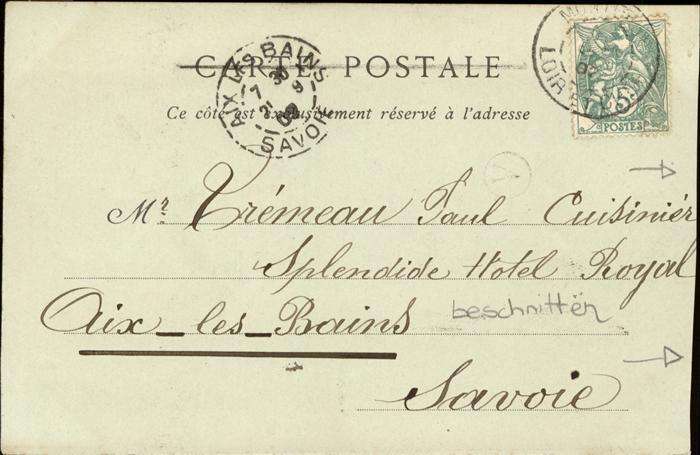 CARTE POSTALE
Ce côté est exclusivement réservé à l'adresse
AIX LES BAINS
7 30
21 9
SAVOIE
LOIR
5
POSTES
Mr Trémeau Paul Cuisinier
Splendide Hotel Royal
Aix-les-Bains
beschnitten
Savoie